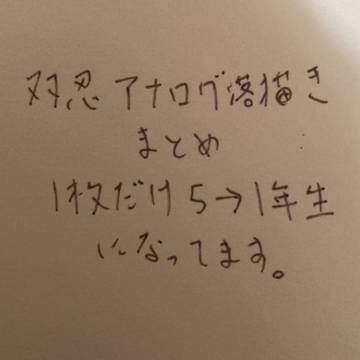 双忍アナログ落描き
まとめ
1枚だけ5→1年生
になってます。